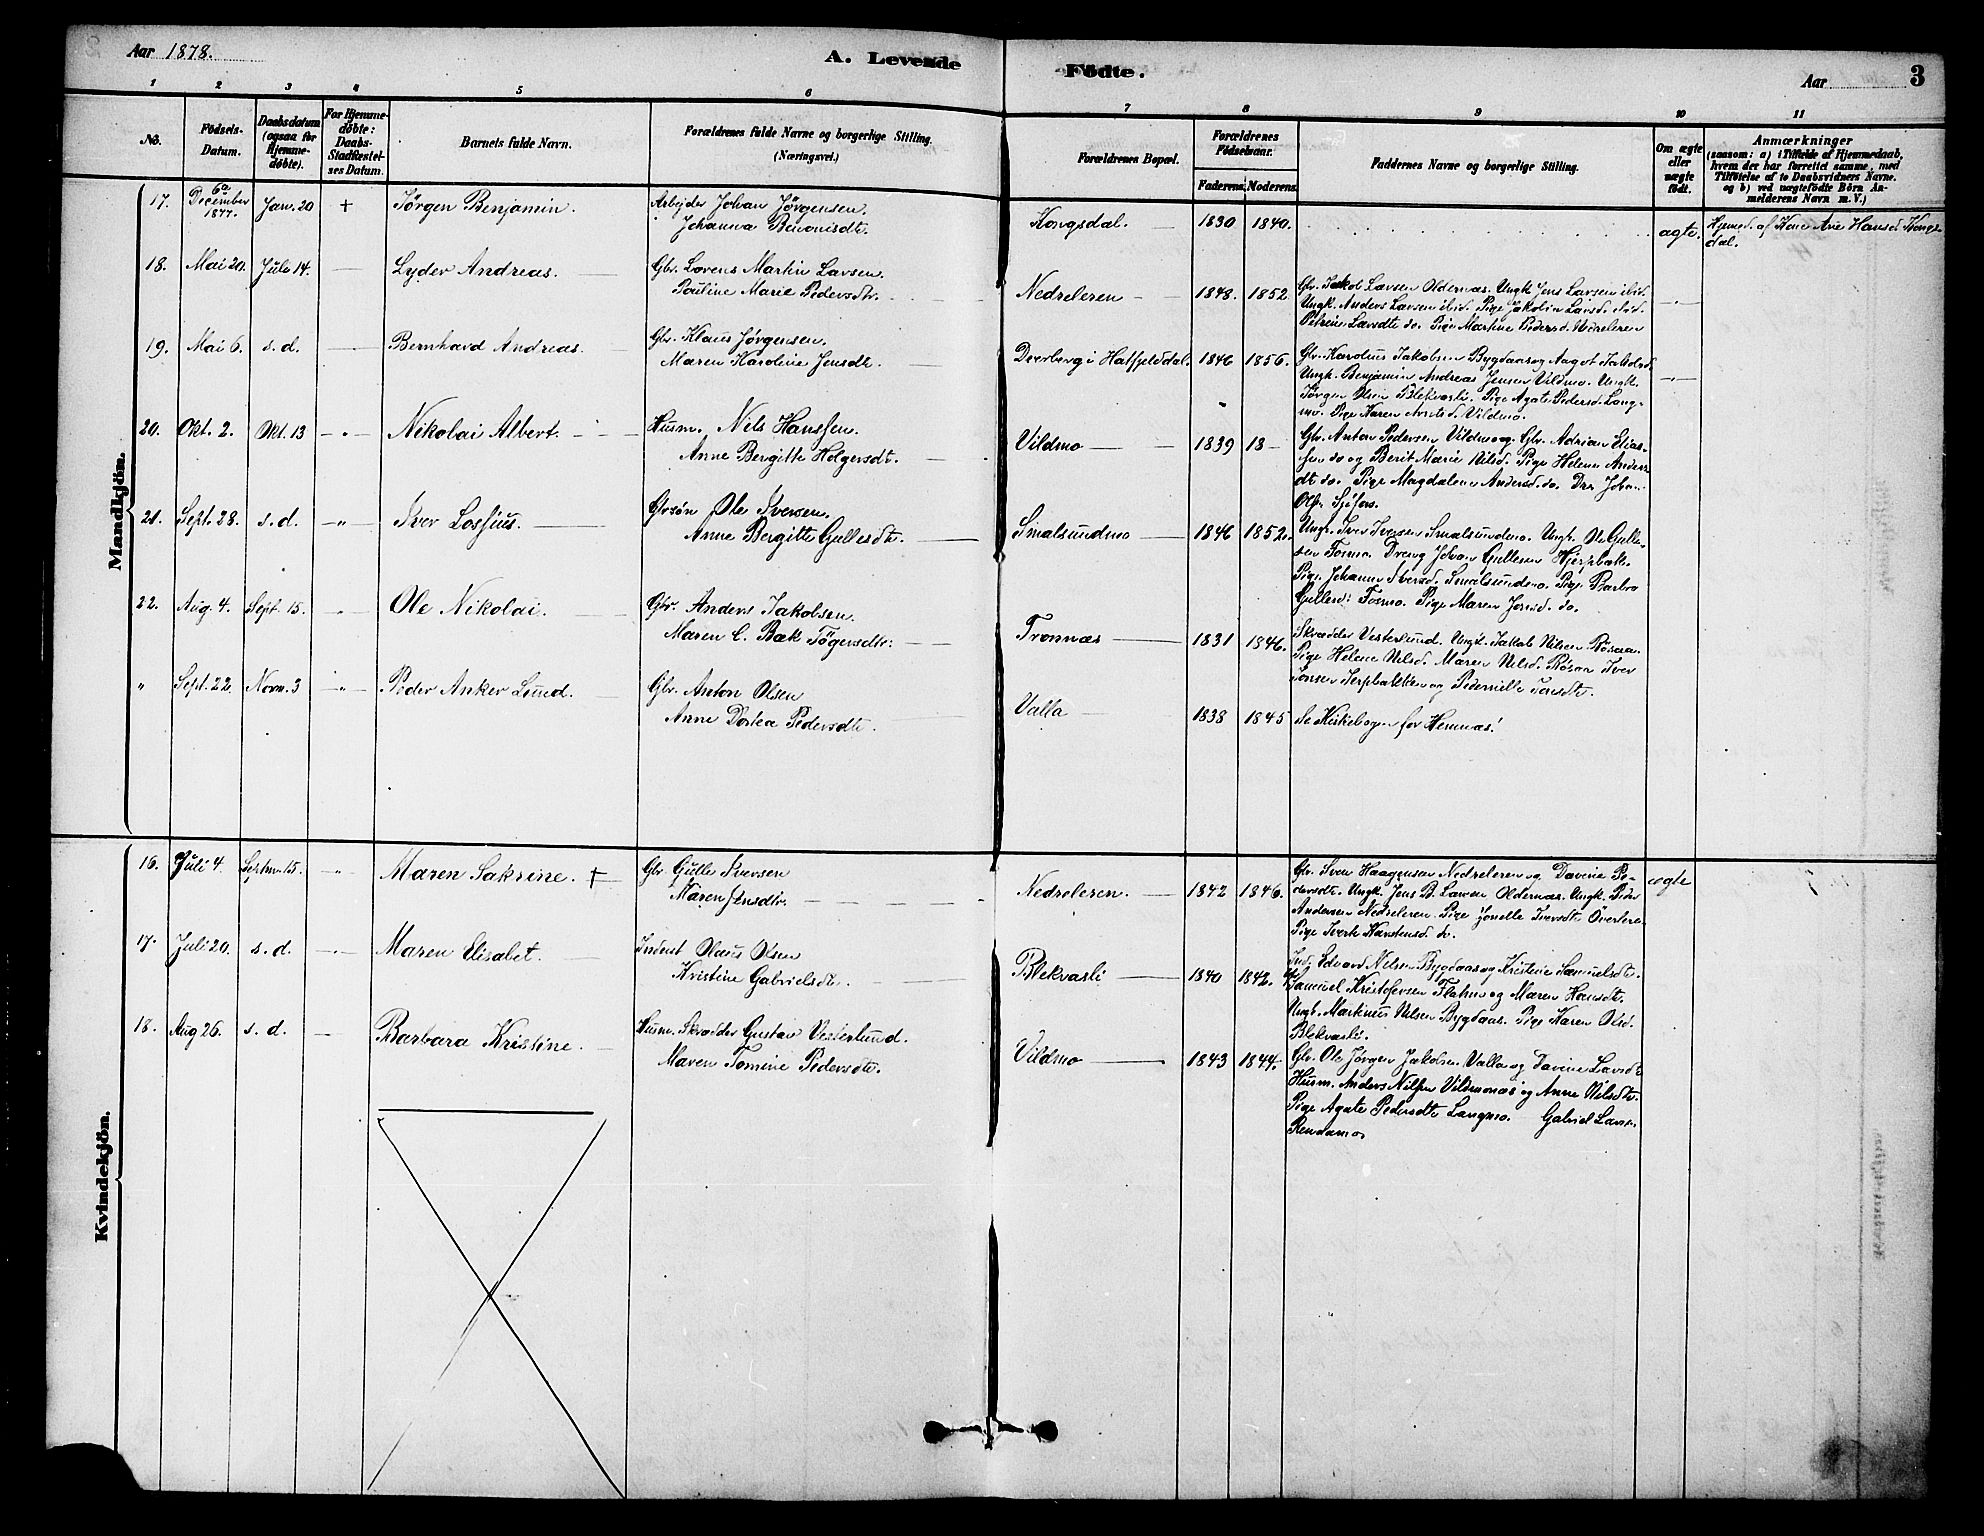 Aar 1878.
A. Levende
Fødte.
Aar
3
1 2 3 4 5 6 7 8 9 10 11
No.
Fødsels-Datum.
Daabsdatum (ogsaa for Hjemmedøbte).
For Hjemmedøbte: Daabs-Stadfæstelses Datum.
Barnets fulde Navn.
Forældrenes fulde Navne og borgerlige Stilling. (Næringsvei.)
Forældrenes Bopæl.
Forældrenes Fødselsaar.
Faderens. Moderens.
Faddernes Navne og borgerlige Stilling.
Om ægte eller uægte født.
Anmærkninger
(saasom: a) i Tilfælde af Hjemmedaab,
hvem der har forrettet samme, med
Tilføielse af to Daabsvidners Navne.
og b) ved uægtefødte Børn Anmelderens Navn m. V.)
Mandkjön.
17. December 6te 1877. Jan. 20 + Jørgen Benjamin. Arbejder Johan Jørgensen. Kongsdal. 1830 1840. ægte. Hjemed. af Kone Ane Hansd. Kongs
Johanna Benonisdtr. dal.
18. Mai 20. Jule 14. Lyder Andreas. Gbr. Lorens Martin Larsen. Nedreleren 1848. 1852 Gbr. Jakob Larsen Oldernæs. Ungk. Jens Larsen ibid.
Pouline Marie Pedersdtr. Ungk. Anders Larsen ibid. Pige Jakobin Larsd. ibid.
Petrine Larsdtr do. Pige Martine Pedersd. Nedreleren
19. Mai 6. s. d. Bernhard Andreas. Gbr. Klaus Jørgensen. Dverberg i Hatfjelddal. 1846 1856. Gbr. Karolius Jakobsen Bygdaas og Aagot Jakobsd.
Maren Karoline Jensdtr. Ungk. Benjamin Andreas Jensen Vildmo. Ungk.
Jørgen Olsen Blekvasli. Pige Agate Pedersd. Lang-
mo. Pige Karen Arntsd. Vildmo.
20. Okt. 2. Okt. 13 Nikolai Albert. Husm. Nils Hanssen. Vildmo 1839 18 Gbr. Anton Pedersen Vildmo og Gbr. Adrian Elias-
Anne Bergitte Holgersdt. sen do og Berit Marie Nilsd. Pige Helene Anders
dt do. Pige Magdalene Andersd. do. Dr. Johan
Ols. Sjøfors.
21. Sept. 28. s. d. Iver Lossius. Gbrsøn Ole Iversen. Smalsundmo 1846 1852. Ungk. Iver Iversen Smalsundmo. Ungk. Ole Gulle-
Anne Bergitte Gullesdt. sen Fosmo. Dreng Johan Gullesen Hjerpbak.
Pige Johanne Iversd. Smalsundmo. Pige Barbro
Gullesd. Fosmo. Pige Maren Jonsd. do.
22. Aug. 4. Sept. 15. Ole Nikolai. Gbr. Anders Jakobsen. Tromnæs 1831 1846. Skrædder Vesterlund. Ungk. Jakob Nilsen Røsaa.
Maren C. Bæk Tögersdtr. Pige Helene Nilsd. Maren Nilsd. Røsaa Iver
Jonsen Jerpbakken og Pedernille Jonsdt.
" Sept. 22. Novm. 3 Peder Anker Lund. Gbr. Anton Olsen Valla 1838 1845 Se Kirkebogen for Hemnæs!
Anne Dortea Pedersdt.
Kvindekjön.
16. Juli 4. Septm. 15. Maren Sakrine. + Gbr Gulle Iversen Nedreleren. 1842 1846. Gbr. Sven Haagensen Nedreleren og Davine Pe- ægte
Maren Jensdtr. dersdt. Ungk. Jens B. Larsen Oldernæs. Ungk. Peder
Andersen Nedreleren. Pige Jonelle Iversdt. Överlere
Pige Iverk Karstensd. do.
17. Juli 20. s. d. Maren Elisabet. Inderst Olaus Olsen Blekvasli 1840 1842. Ind. Edvard Nilsen Bygdaas og Kristine Samuelsdt.
Kristine Gabrielsdt. Samuel Kristofersen Flatmo og Maren Hansdt.
Ungk. Martinus Nilsen Bygdaas. Pige Karen Olsd.
Blekvasli.
18. Aug 26. s. d. Barbara Kristine. Husm. Skrædder Gustav Vesterlund. Vildmo 1843 1844. Gbr. Ole Jørgen Jakobsen Valla og Davine Larsdt.
Maren Tomine Pedersdt. Husm. Anders Nilsen Vildmonæs og Anne Nilsdt.
Pige Agate Pedersdt Langmo. Gabriel Larsn.
Rendamo.